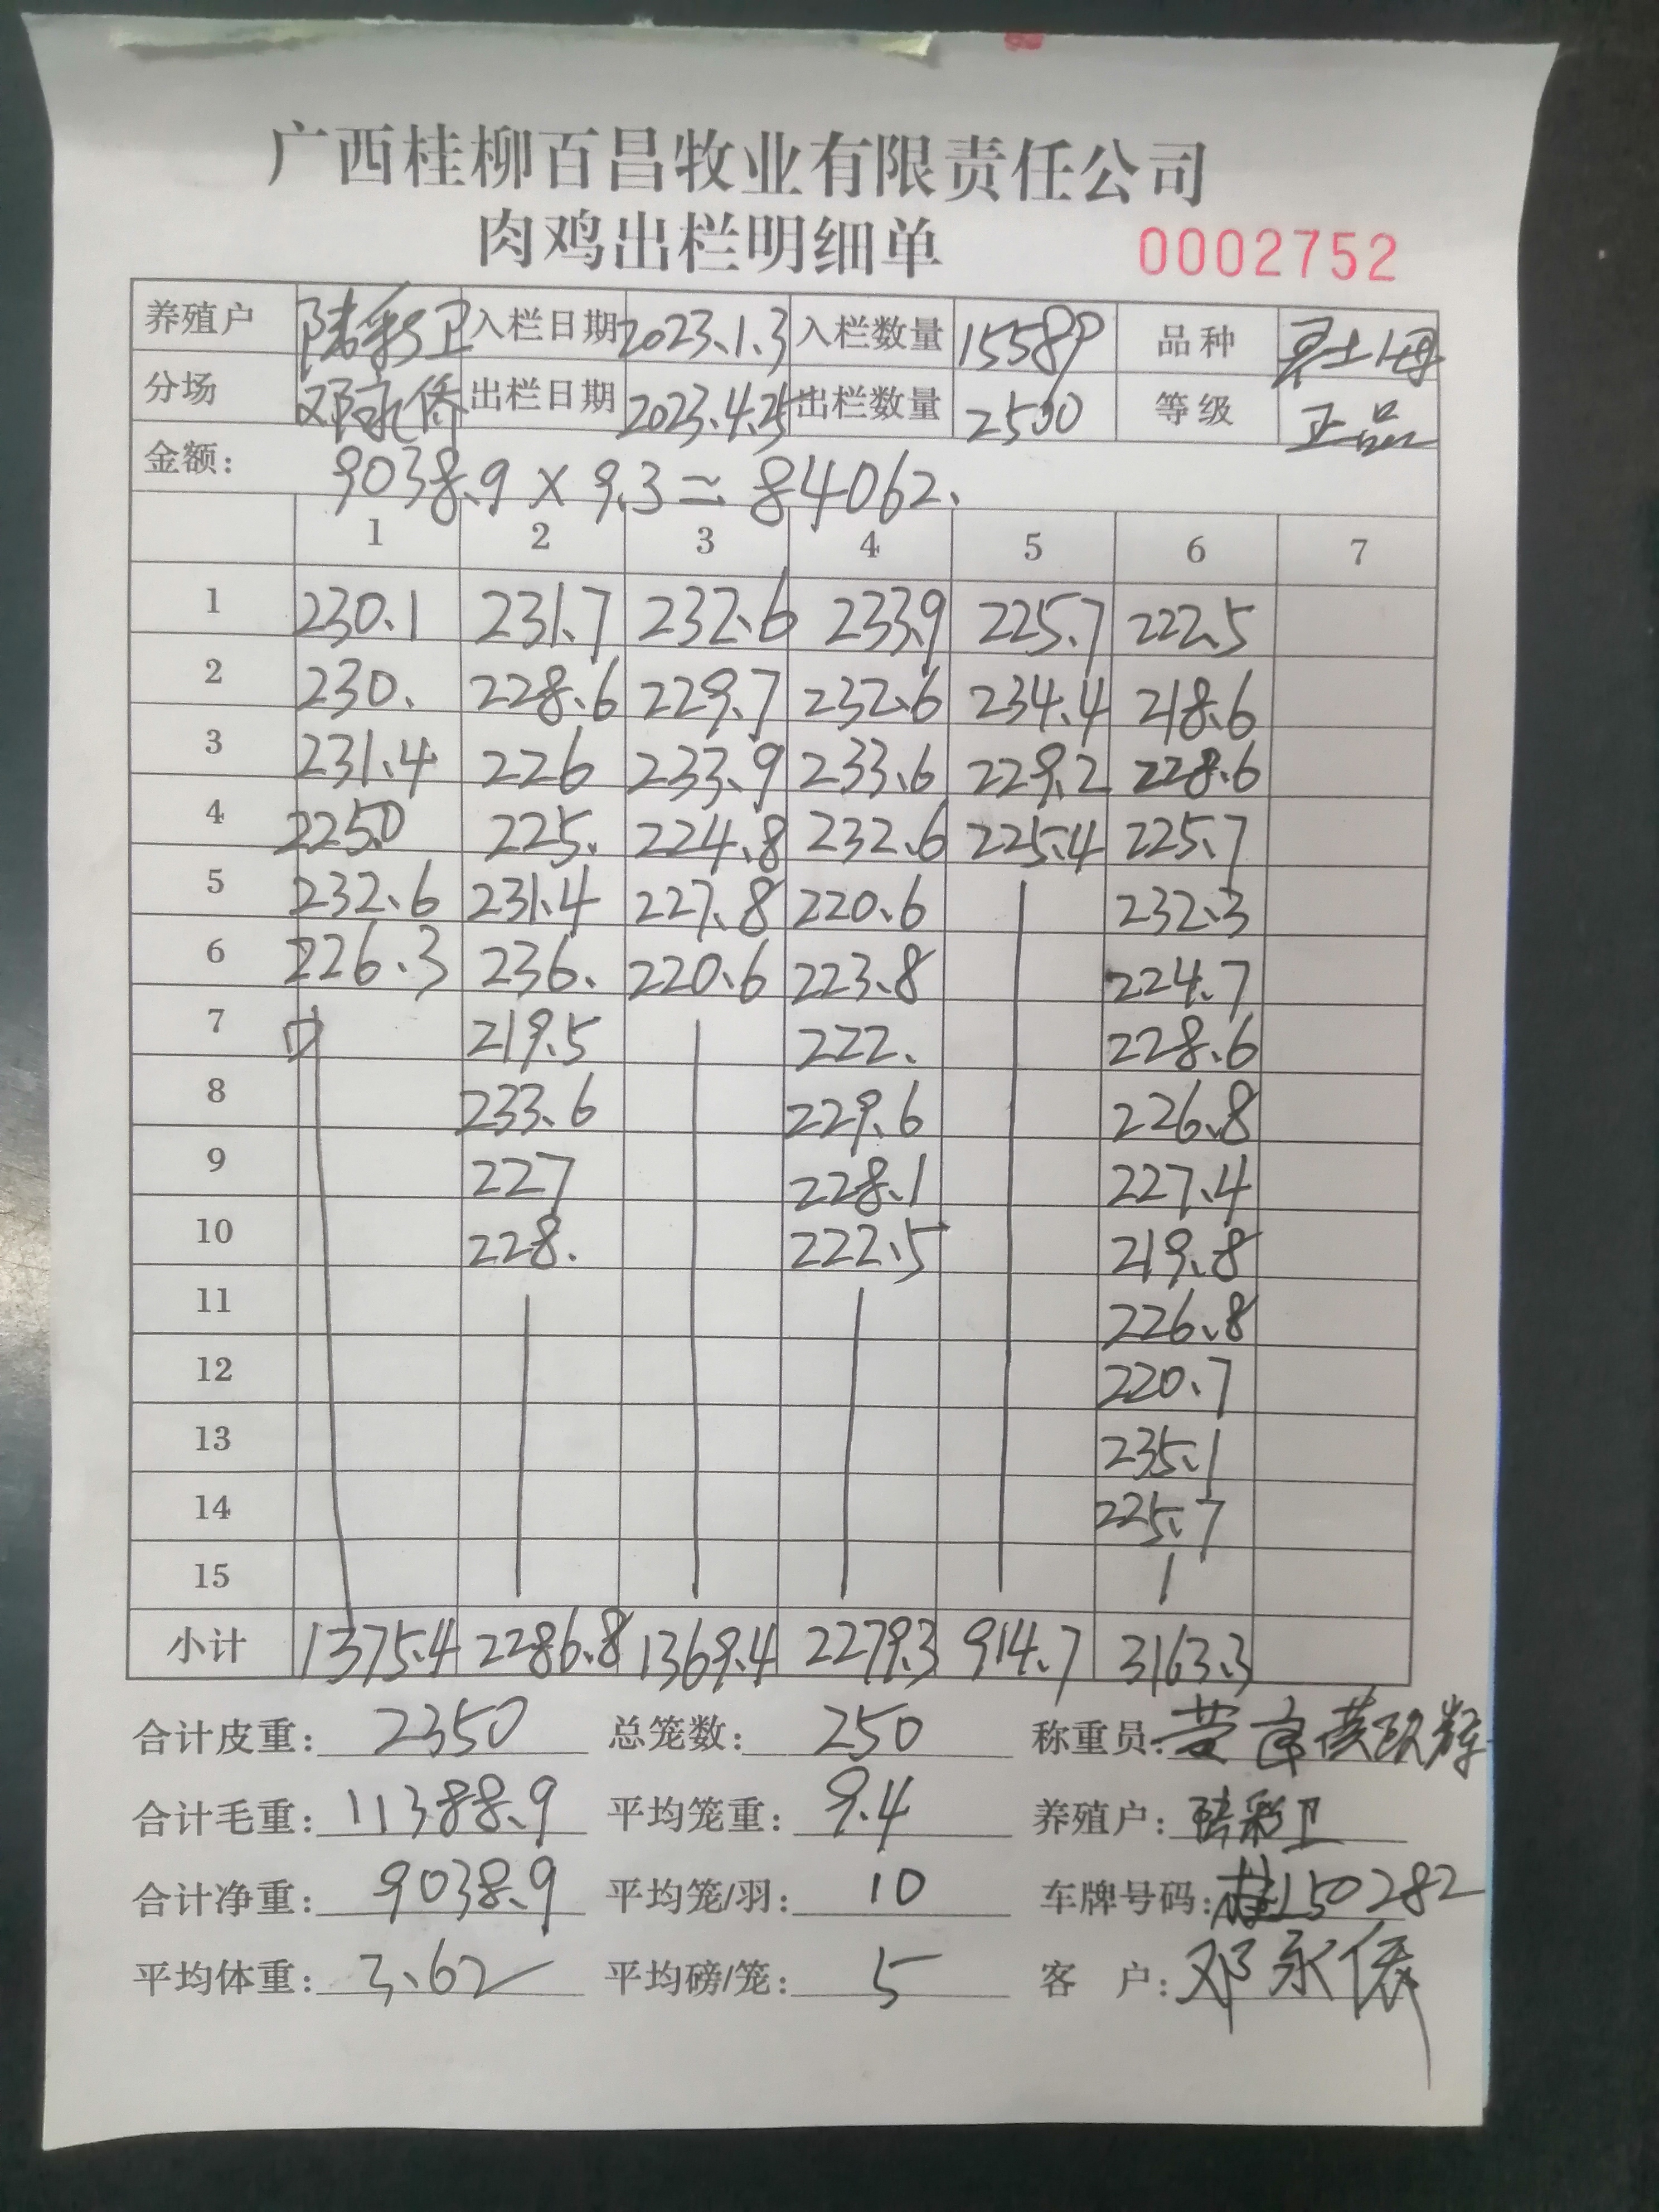 广西桂柳百昌牧业有限责任公司
肉鸡出栏明细单 0002752
养殖户 陆彩卫 入栏日期 2023.1.3 入栏数量 15589 品种 土母
分场 邓永侨 出栏日期 2023.4.25 出栏数量 2500 等级 正品
金额: 9038.9 × 9.3 = 84062.
1 2 3 4 5 6 7
1 230.1 231.7 232.6 233.9 225.7 222.5
2 230. 228.6 229.7 232.6 234.4 218.6
3 231.4 226 233.9 233.6 229.2 228.6
4 225.0 225. 224.8 232.6 225.4 225.7
5 232.6 231.4 227.8 220.6 232.3
6 226.3 236. 220.6 223.8 224.7
7 219.5 222. 228.6
8 233.6 229.6 226.8
9 227 228.1 227.4
10 228. 222.5 219.8
11 226.8
12 220.7
13 235.1
14 225.7
15
小计 1375.4 2286.8 1369.4 2279.3 914.7 3163.3
合计皮重: 2350 总笼数: 250 称重员:
合计毛重: 11388.9 平均笼重: 9.4 养殖户: 陆彩卫
合计净重: 9038.9 平均笼/羽: 10 车牌号码: 桂L50282
平均体重: 3.62 平均磅/笼: 5 客 户: 邓永侨